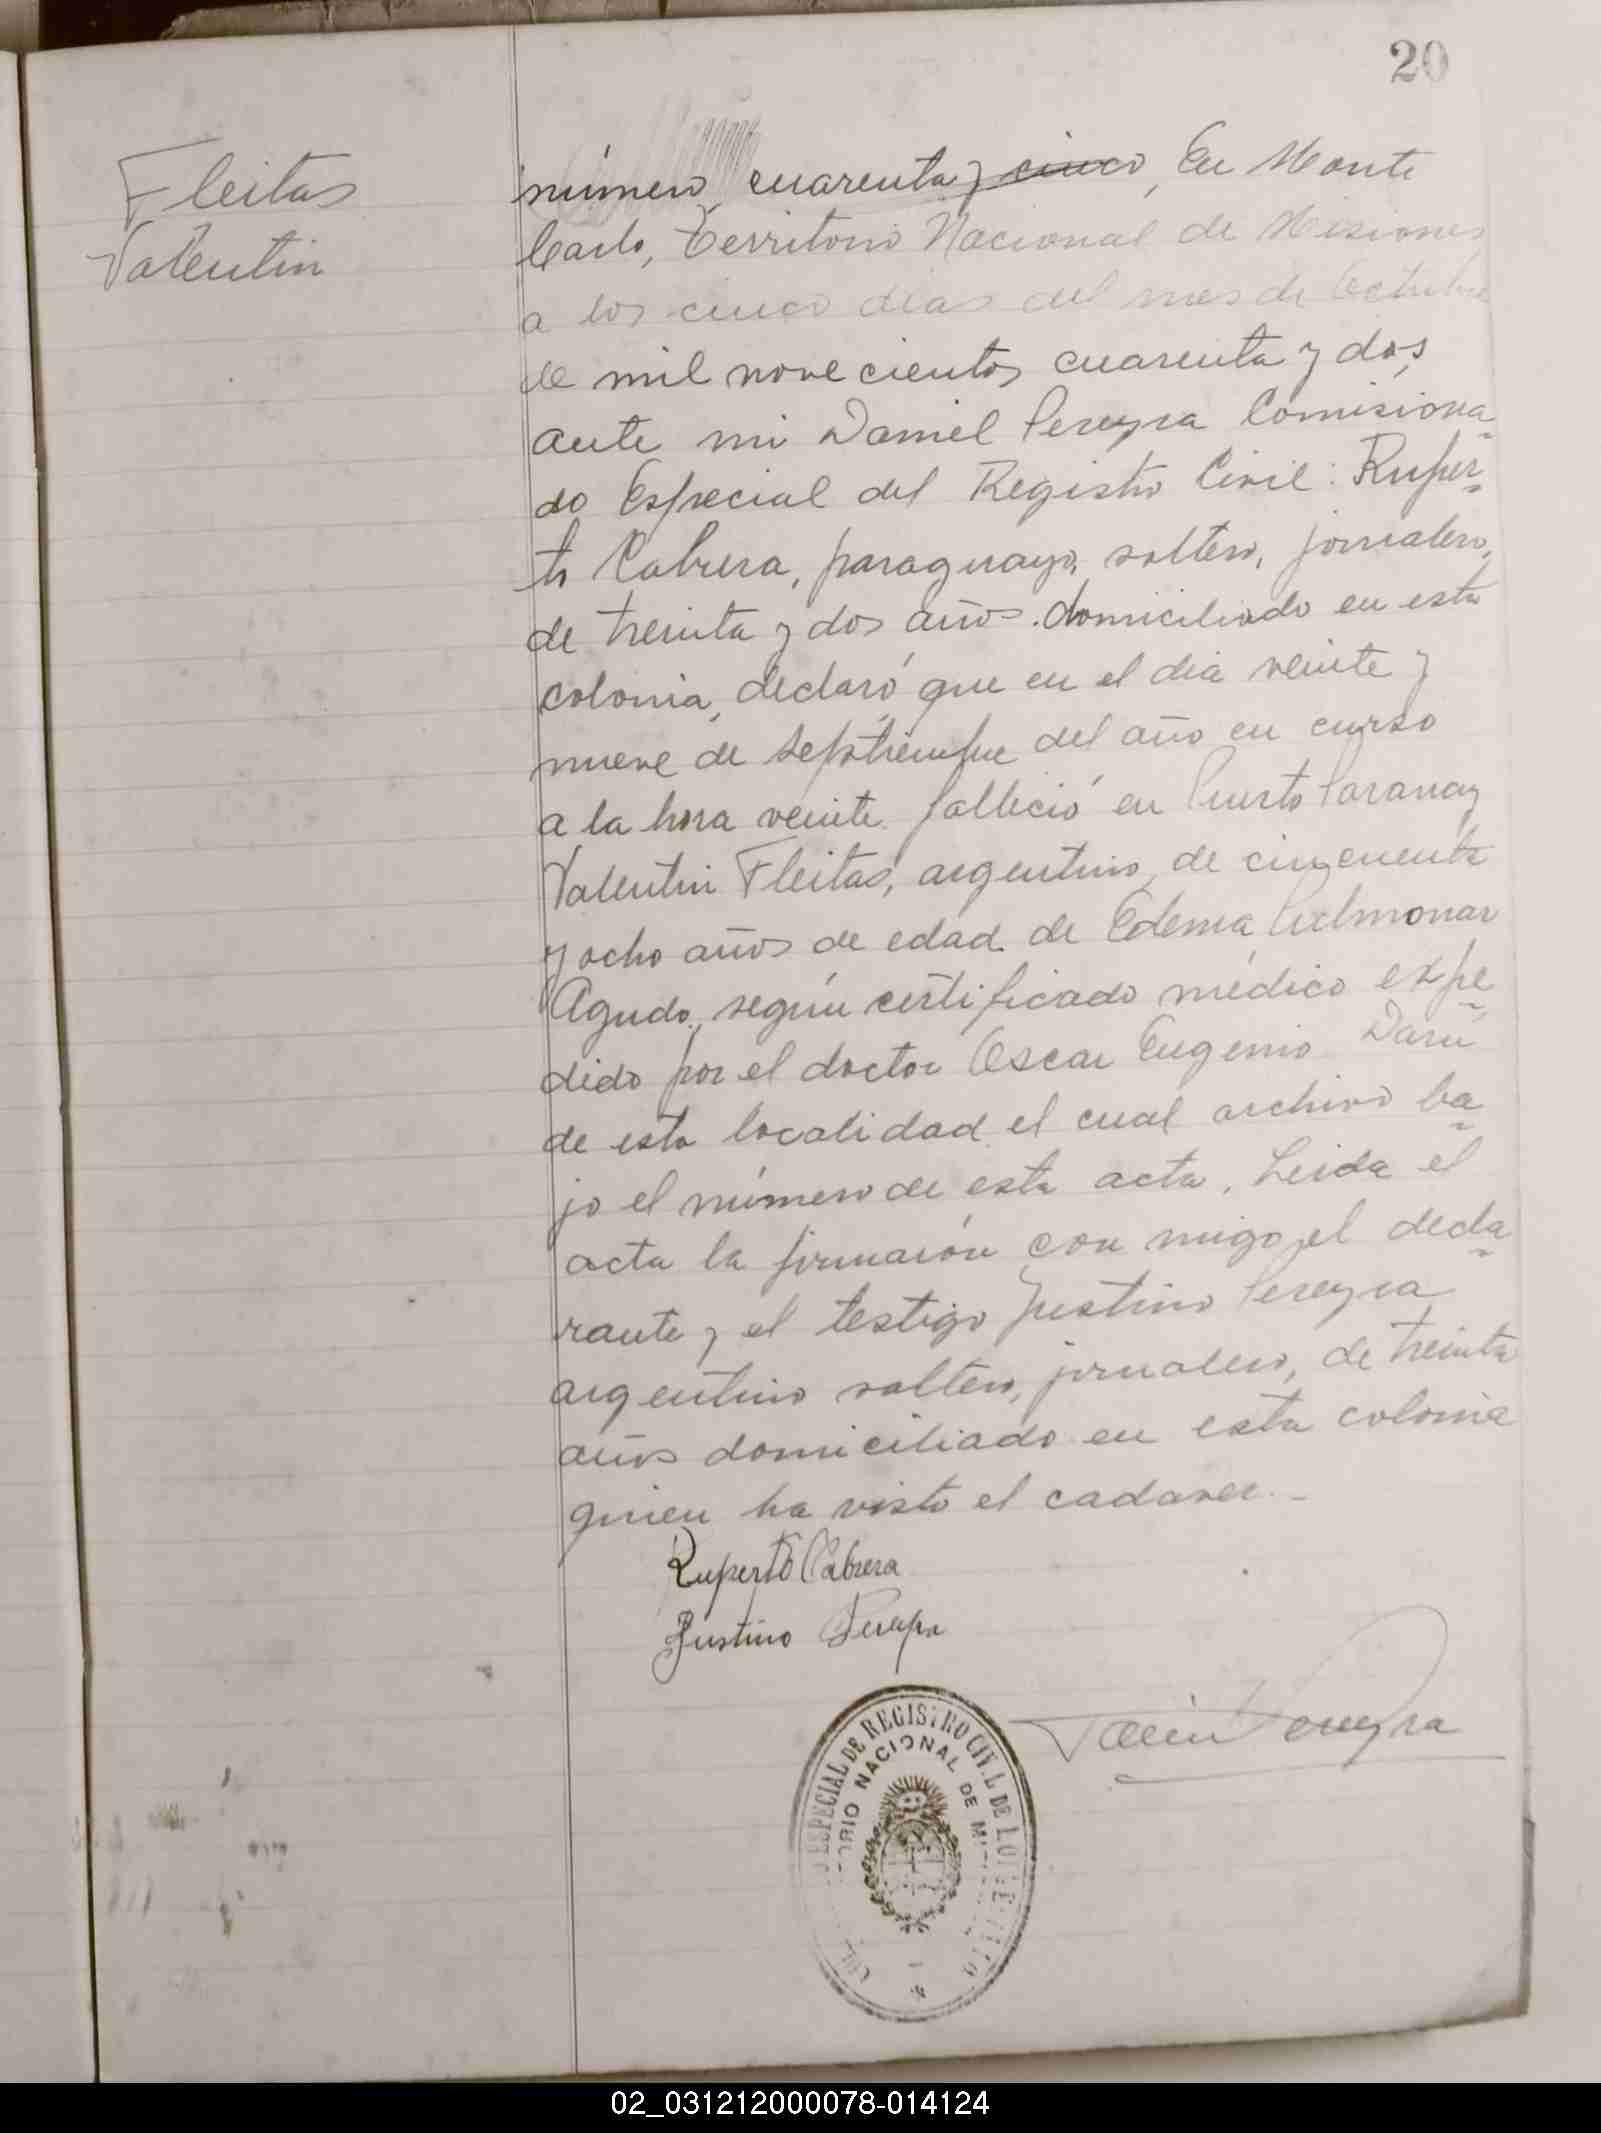 20
Fleitas
Valentin
número cuarenta y cinco, En Monte
Carlo, Territorio Nacional de Misiones
a los cinco dias del mes de Octubre
de mil novecientos cuarenta y dos,
ante mi Daniel Pereyra Comisiona-
do Especial del Registro Civil: Ruper-
to Cabrera, paraguayo, soltero, jornalero,
de treinta y dos años domiciliado en esta
colonia, declaró que en el dia veinte y
nueve de septiembre del año en curso
a la hora veinte falleció en Puerto Paranay
Valentin Fleitas, argentino, de cincuenta
y ocho años de edad de Edema Pulmonar
Agudo, según certificado médico expe-
dido por el doctor Oscar Eugenio Darú
de esta localidad el cual archivo ba-
jo el número de esta acta. Leida el
acta la firmarón con migo, el decla-
rante y el testigo Justino Pereyra
argentino soltero, jornalero, de treinta
años domiciliado en esta colonia
quien ha visto el cadaver.-
Ruperto Cabrera
Justino Pereyra
Daniel Pereyra
ESPECIAL DE REGISTRO CIVIL DE
NACIONAL DE
02_031212000078-014124